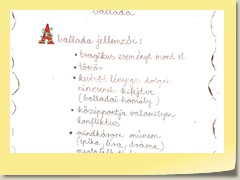 ballada
A ballada jellemzői:
• tragikus eseményt mond el
• tömör
• kevésbé lényeges dolgok
nincsenek kifejtve
(balladai homály)
• középpontja valamilyen
konfliktus
• mindhárom műnem
(epika, líra, dráma)